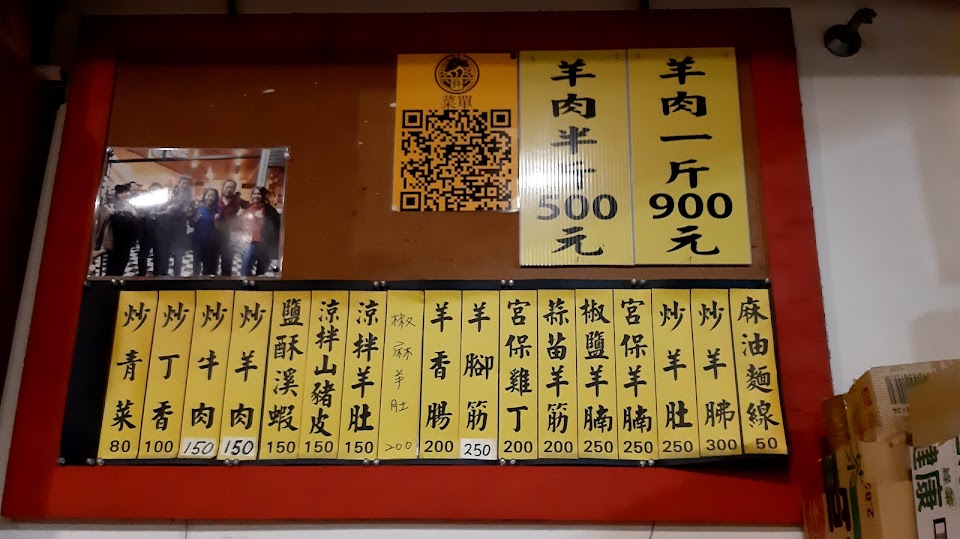 菜單
羊肉半斤500元
羊肉一斤900元
炒青菜80
炒丁香100
炒牛肉150
炒羊肉150
鹽酥溪蝦150
涼拌山豬皮150
涼拌羊肚150
椒麻羊肚200
羊香腸200
羊腳筋250
宮保雞丁200
蒜苗羊筋200
椒鹽羊腩250
宮保羊腩250
炒羊肚250
炒羊肺300
麻油麵線50
健康